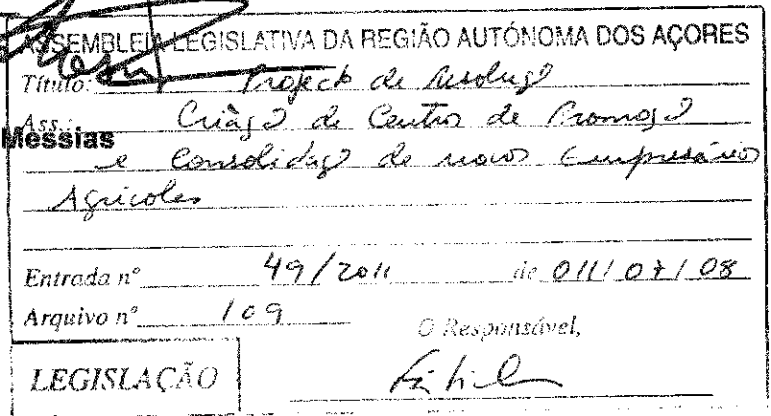 ASSEMBLEIA LEGISLATIVA DA REGIÃO AUTÓNOMA DOS AÇORES
Título: Projecto de Resolução
Ass.: Criação de Centros de Promoção
Messias
e Consolidação de novos Empresários
Agrícolas
Entrada nº 49/2011 de 011/07/08
Arquivo nº 109
O Responsável,
LEGISLAÇÃO